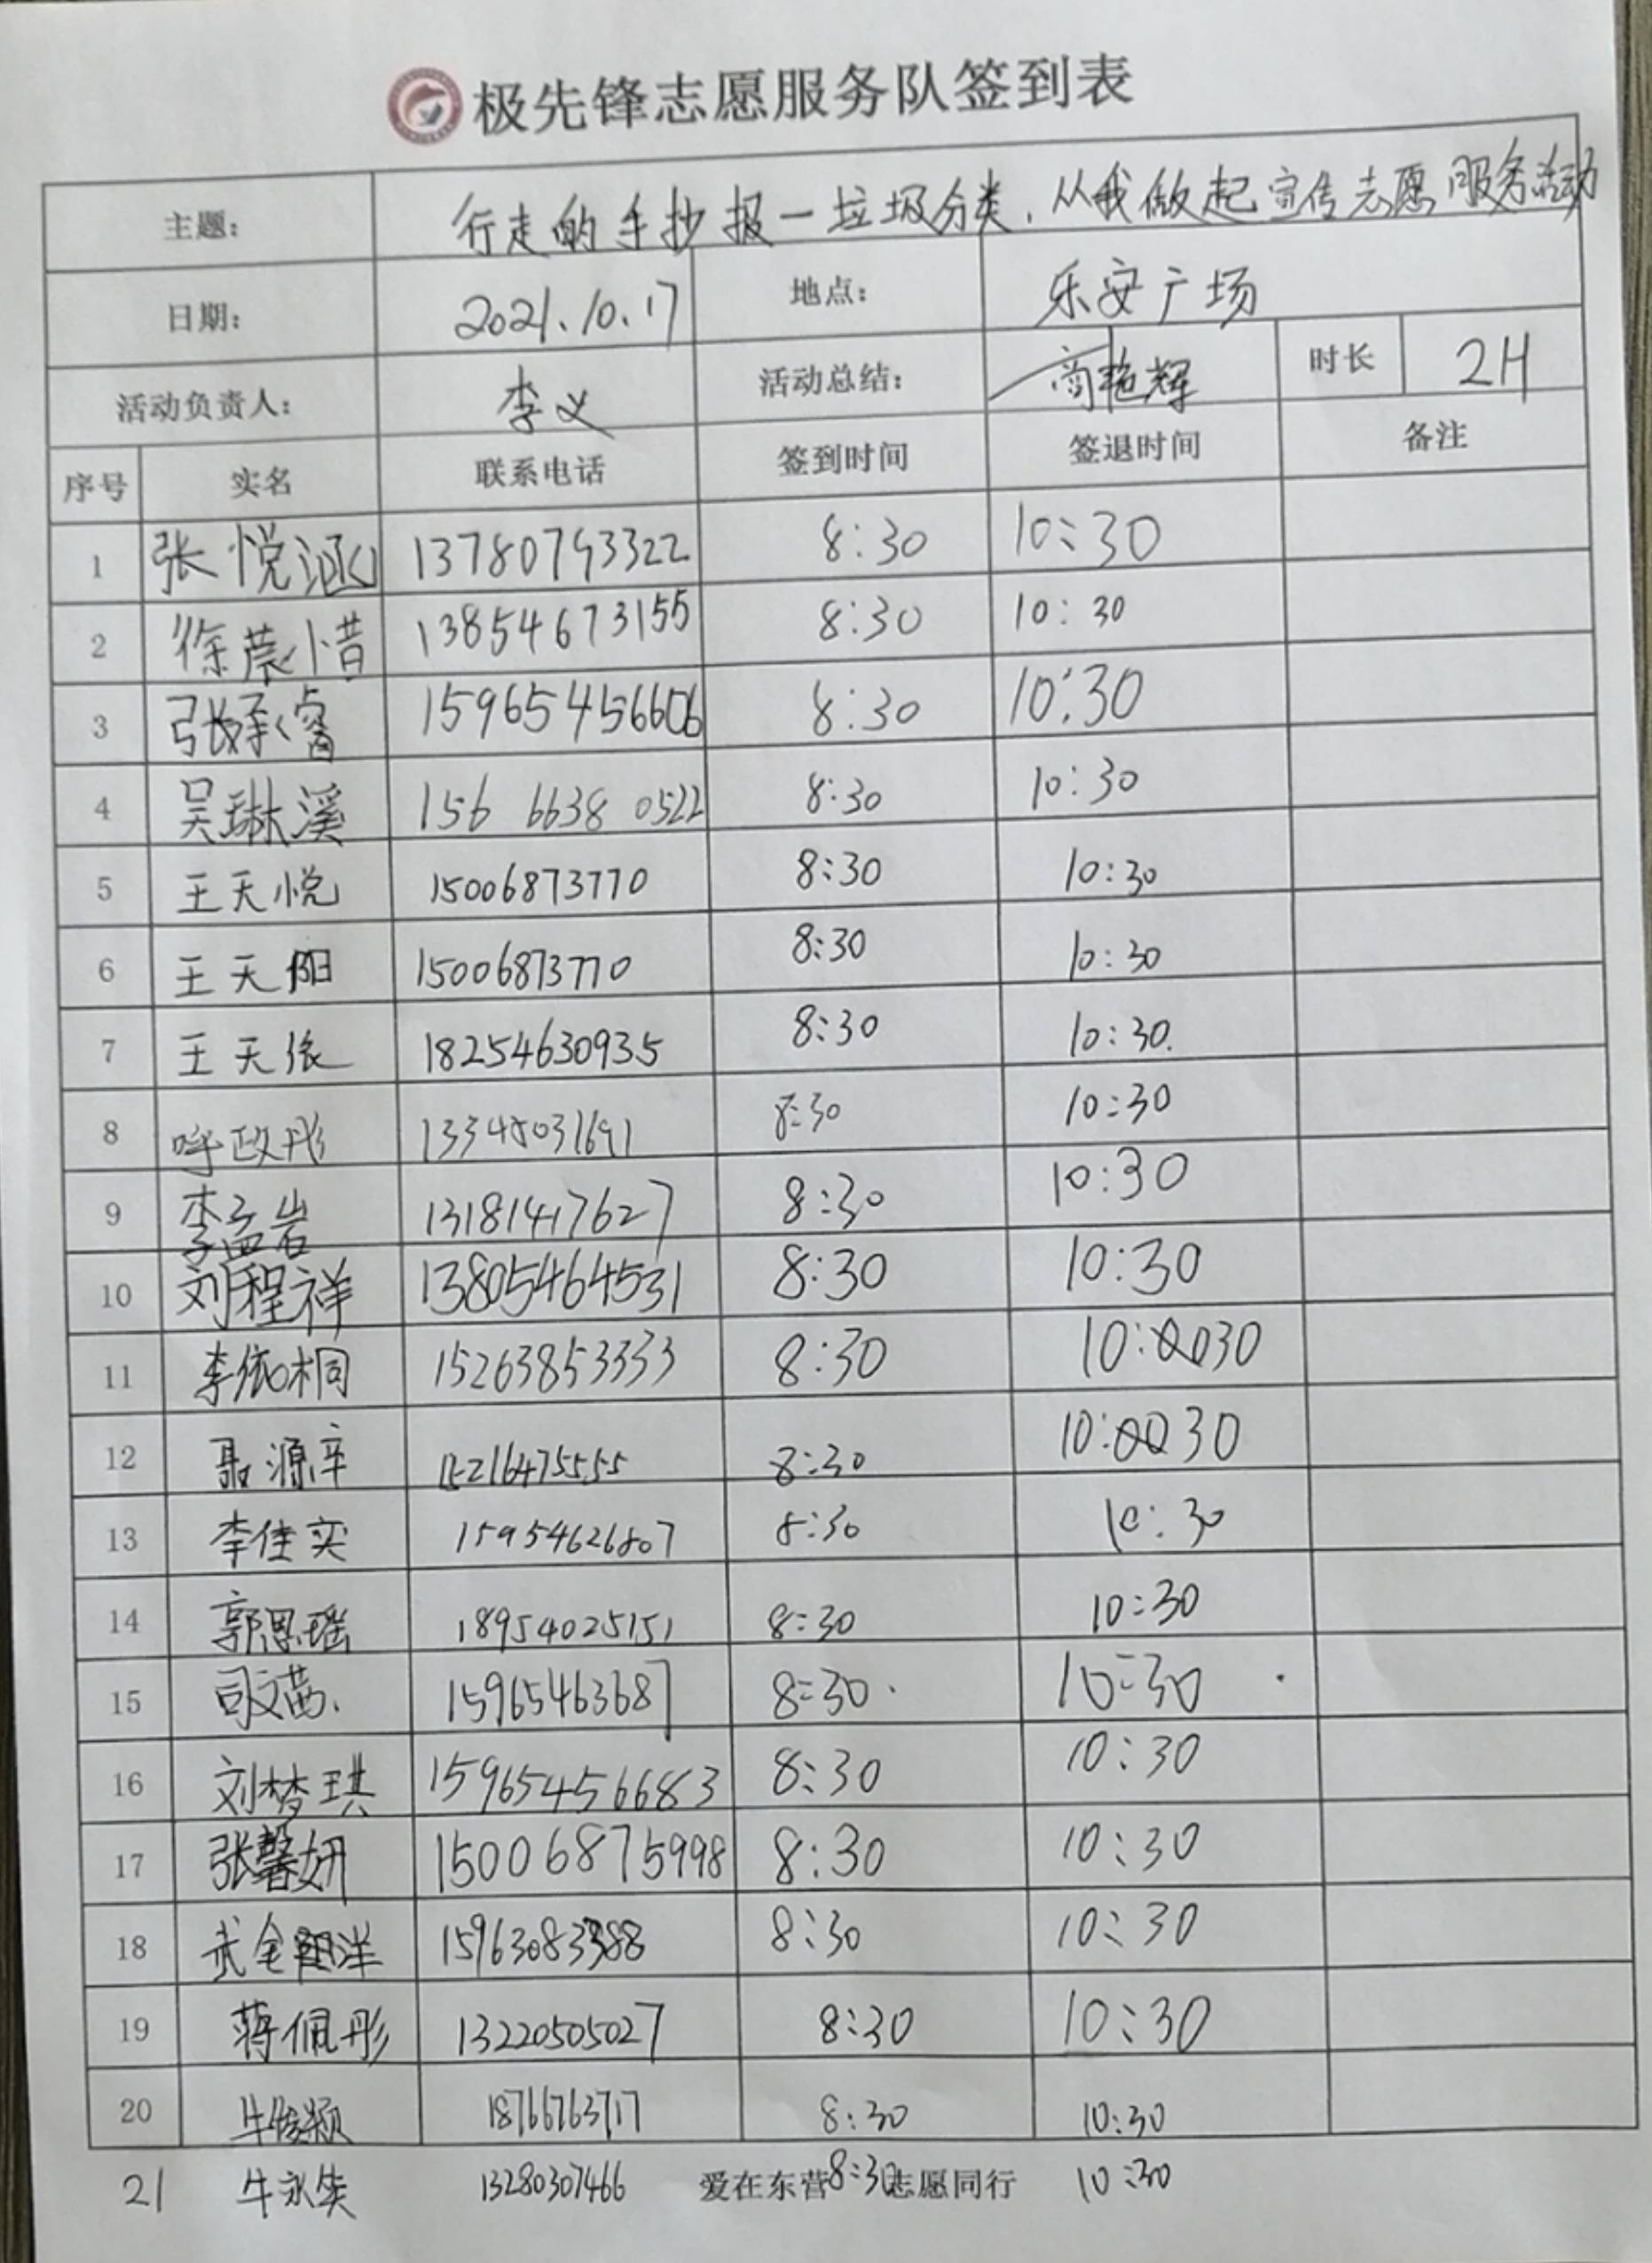 极先锋志愿服务队签到表
主题: 行走的手抄报一垃圾分类,从我做起宣传志愿服务活动
日期: 2021.10.17 地点: 乐安广场
活动负责人: 李义 活动总结: 商艳辉 时长 2H
序号 实名 联系电话 签到时间 签退时间 备注
1 张悦涵 13780793322 8:30 10:30
2 徐晨惜 13854673155 8:30 10:30
3 张承睿 15965456606 8:30 10:30
4 吴琳溪 156 6638 0522 8:30 10:30
5 王天悦 15006873770 8:30 10:30
6 王天阳 15006873770 8:30 10:30
7 王天依 18254630935 8:30 10:30.
8 呼政彤 8:30 10:30
9 李孟岩 13181417627 8:30 10:30
10 刘程祥 13805464531 8:30 10:30
11 李依桐 15263853333 8:30 10:30
12 聂源辛 15216475555 8:30 10:30
13 李佳奕 15954626807 8:30 10:30
14 郭恩瑶 18954025151 8:30 10:30
15 司文茜. 15965463687 8:30 10:30
16 刘梦琪 15965456683 8:30 10:30
17 张馨妍 15006875998 8:30 10:30
18 武 洋 8:30 10:30
19 蒋佩彤 13220505027 8:30 10:30
20 牛俊颖 18766763717 8:30 10:30
21 牛永 13280307466 8:30 10:30
爱在东营 志愿同行